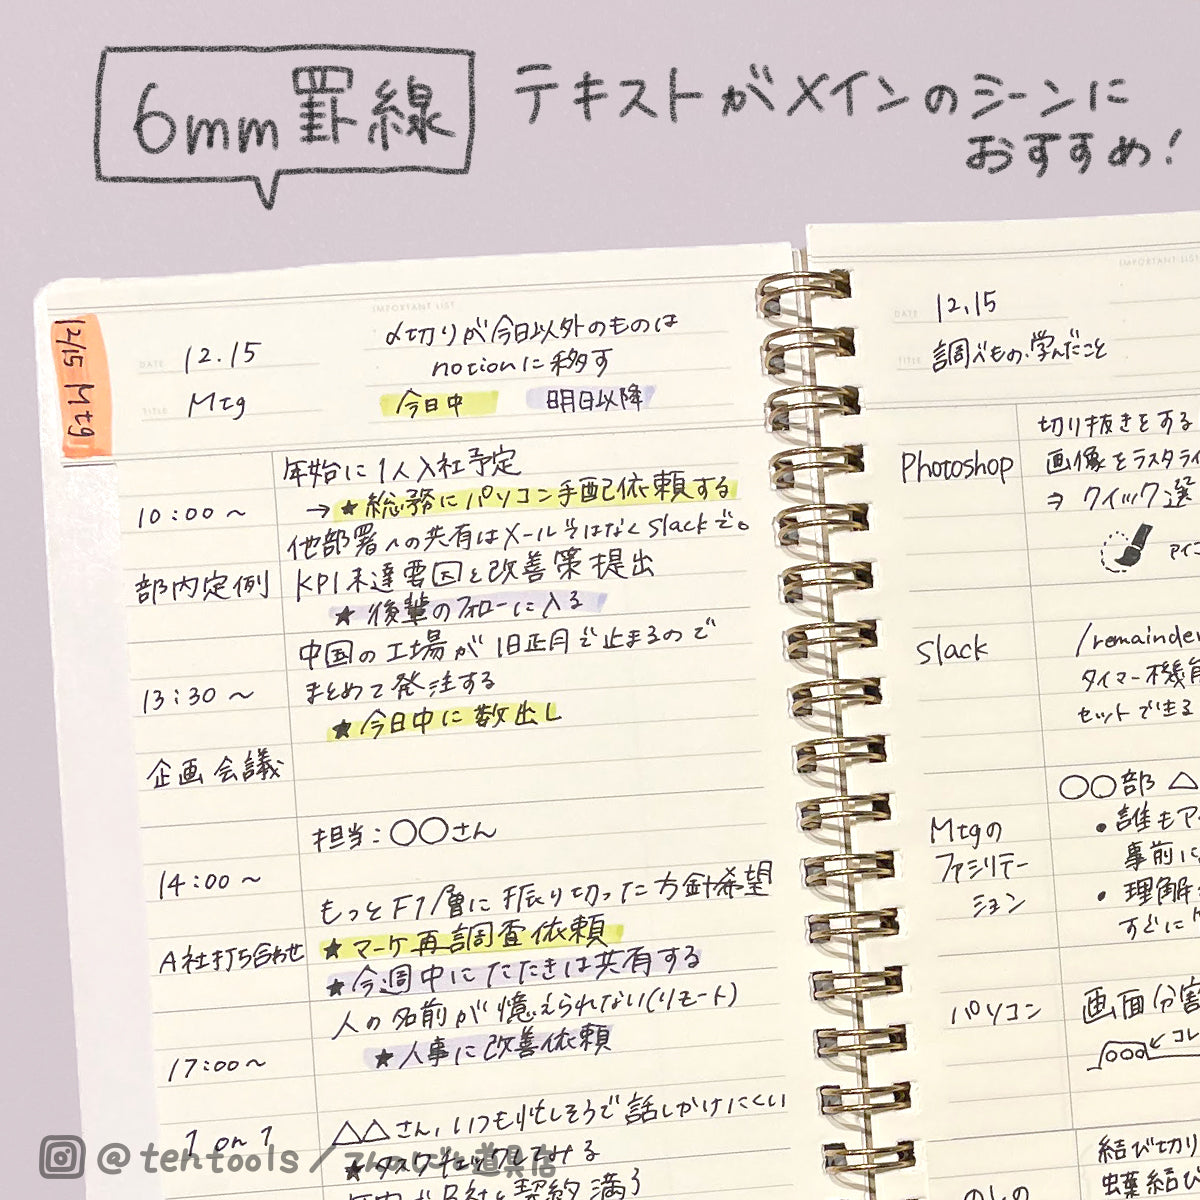 6mm罫線
テキストがメインのシーンに
おすすめ!
12/15 Mtg
IMPORTANT LIST
DATE 12.15
TITLE Mtg
〆切りが今日以外のものは
notionに移す
今日中 明日以降
年始に1人入社予定
10:00〜 → ★総務にパソコン手配依頼する
他部署への共有はメールではなくSlackで。
部内定例 KPI未達要因と改善策提出
★後輩のフォローに入る
中国の工場が旧正月で止まるので
13:30〜 まとめて発注する
★今日中に数出し
企画会議
担当:○○さん
14:00〜
もっとF1層に振り切った方針希望
A社打ち合わせ ★マーケ再調査依頼
★今週中にたたきは共有する
人の名前が憶えられない(リモート)
17:00〜 ★人事に改善依頼
1 on 1 △△さん、いつも忙しそうで話しかけにくい
★タスクチェックしてみる
IMPORTANT LIST
DATE 12.15
TITLE 調べもの・学んだこと
切り抜きをする
Photoshop 画像をラスタライ
⇒ クイック選
アイコ
Slack /remainder
タイマー機能
セットできる
○○部 △
Mtgの
ファシリテー
ション
・誰もア
事前に
・理解
すぐに
パソコン 画面分割
コレ
結び切り
蝶結び
のしの
@tentools/てんのしごと道具店